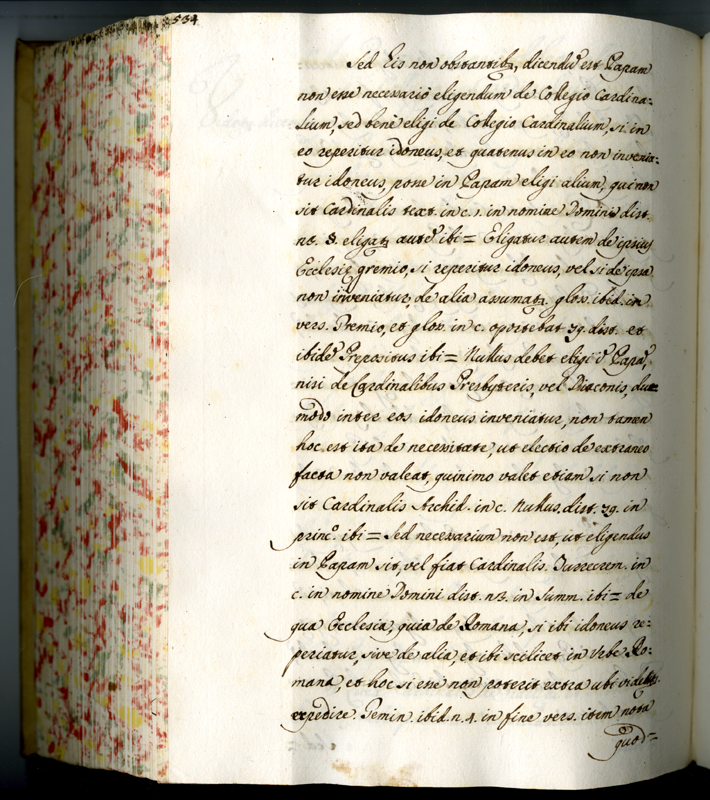 534
Sed Eis non obstantibꝫ, dicendũ est Papam
non esse necessariò eligendum de Collegio Cardina=
lium, sed benè eligi de Collegio Cardinalium, si in
eo reperitur idoneus, et quatenus in eo non invenia=
tur idoneus, posse in Papam eligi alium, qui non
sit Cardinalis text. in c. 1. in nomine Domini dist.
§. eligatꝫ autẽ ibi = Eligatur autem de ipsius
Ecclesię gremio, si reperitur idoneus, vel si de ipsa
non inveniatur, de alia assumatꝫ glos. ibid. in
vers. Premio, et glos. in c. oportebat 79. dist. et
ibidẽ Prepositus ibi = Nullus debet eligi ĩ Papã,
nisi de Cardinalibus Presbyteris, vel Diaconis, dum
modo inter eos idoneus inveniatur, non tamen
hoc est ita de necessitate, ut electio de extraneo
facta non valeat, quinimo valet etiam si non
sit Cardinalis Archid. in c. Nullus. dist. 79. in
princ.º ibi = Sed necessarium non est, ut eligendus
in Papam sit, vel fiat Cardinalis. Turrecrem. in
c. in nomine Domini dist. n3. in summ. ibi = de
qua Ecclesia, quia de Romana, si ibi idoneus re=
periatur, sive de alia, et ibi scilicet in Urbe Ro=
mana, et hoc si esse non poterit extra ubi videbit.
expedire. Gemin. ibid. n. 4. in fine vers. item nota
quod=